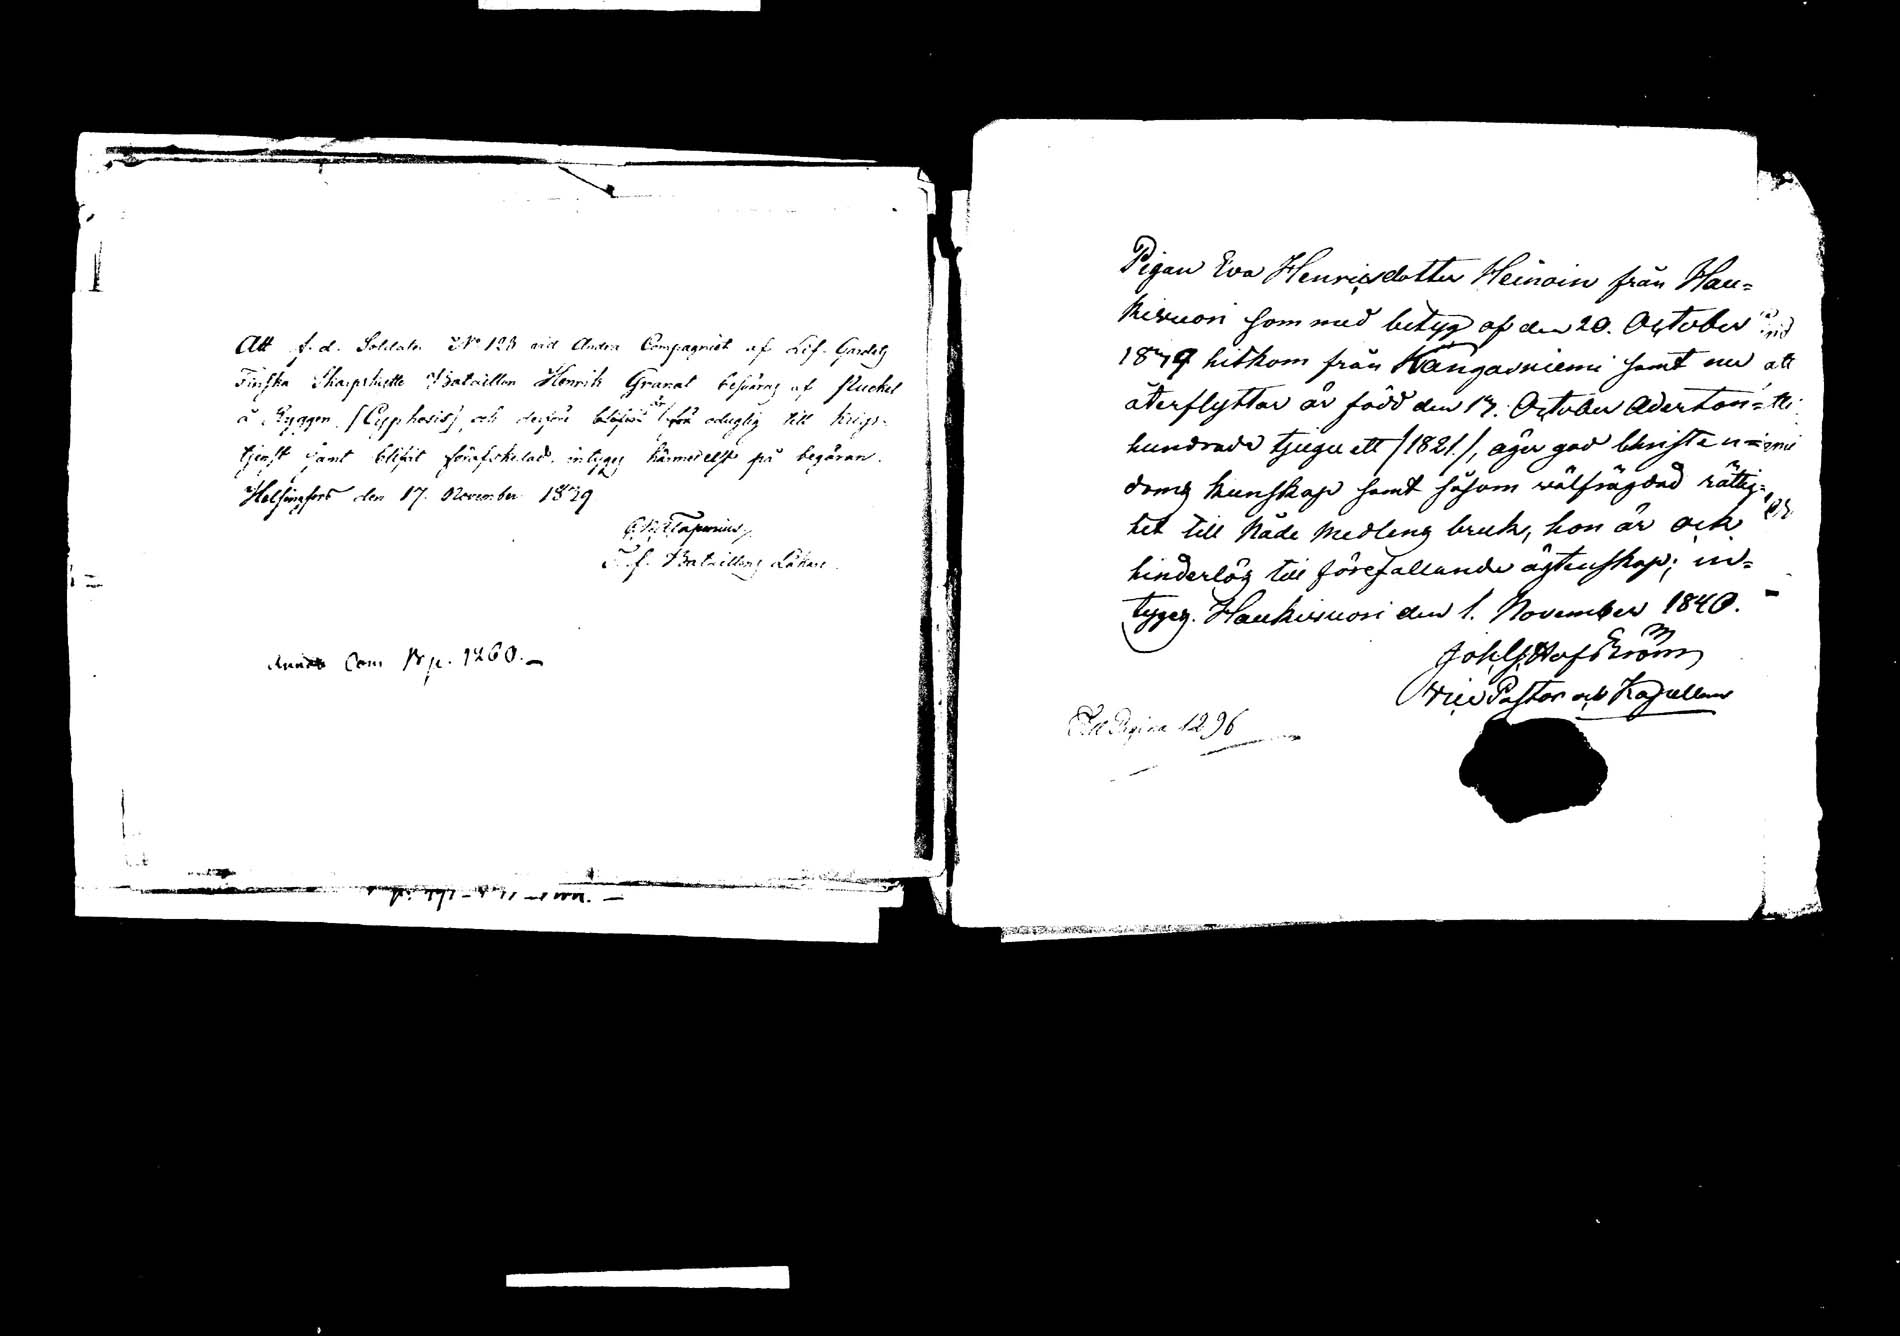 Att f. d. Soldaten No 123 vid Andra Compagniet af Lif-Gardets
Finska Skarpskytte Bataillon Henrik Granat besväras af Puckel
å Ryggen (Cyphosis), och derföre är oduglig till krigs-
tjenst samt blifvit förafskedad, intygas härmedelst på begäran.
Helsingfors den 17. November 1839
T. f. Bataillons Läkare.
Com B p. 1260.
Pigan Eva Henricsdotter Heinoin från Hau=
kivuori som med betyg af den 20. October
1839 hitkom från Kangasniemi samt nu
återflyttar är född den 13. October Aderton=
hundrade tjugu ett /1821/, äger god Christen=
doms kunskap samt såsom välfrägdad rättig-
het till Nåde Medlens bruk, hon är ock
hinderlös till förefallande ägtenskap; in=
tygas. Haukivuori den 1. November 1840.
Hofström
vice Pastor och Kapellan
Till Pagina 1296